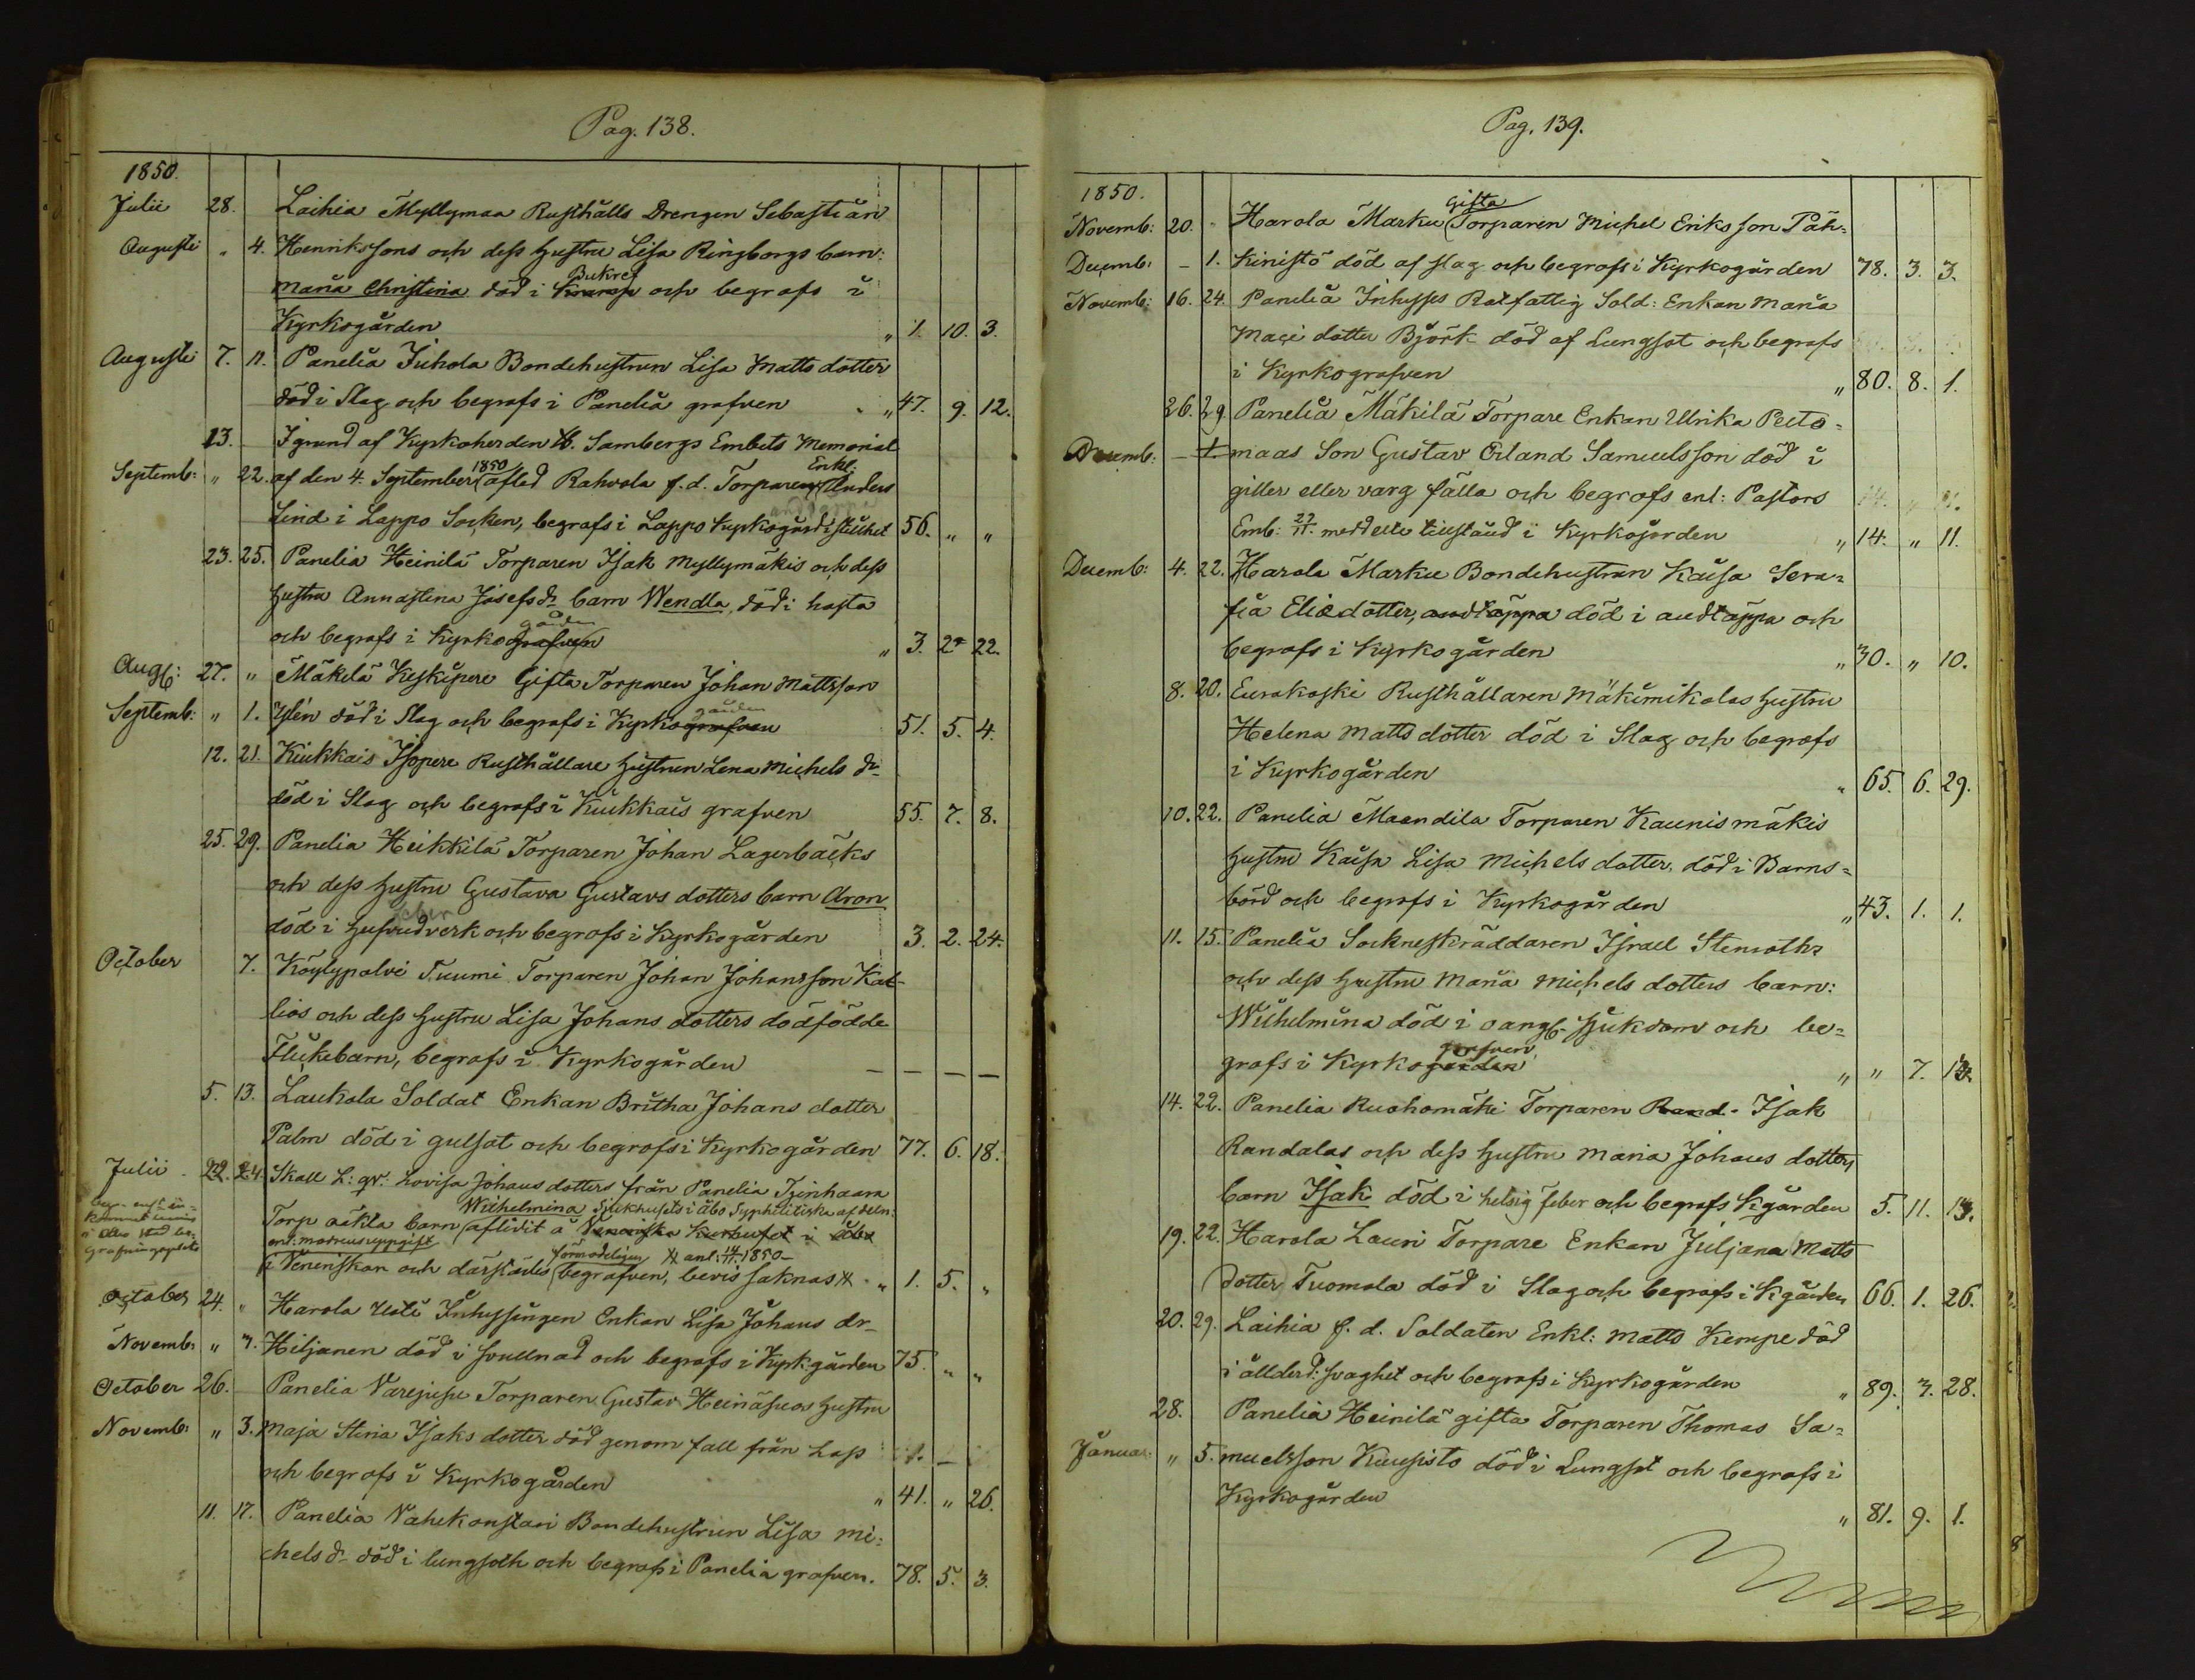 Pag. 138.
1850.
Julii 28. Laihia Myllymaa Rusthålls Drengen Sebastian
Augusti " 4. Henrikssons och dess hustru Lisa Ringborgs barn:
Maria Christina död i Bukref och begrafs i
Kyrkogården " 1. 10. 3.
Augusti 7. 11. Panelia Juhola Bondehustrun Lisa Matts dotter
död i Slag och begrafs i Panelia grafven " 47. 9. 12.
13. I grund af Kyrkoherden W. Sambergs Embets Memorial
Septemb: " 22. af den 4. September 1850 afled Rahvola f.d. Torparen Enkl: Anders
Lind i Lappo Socken, begrafs i Lappo Kyrkogård i stillhet 56. " "
23. 25. Panelia Heinilä Torparen Isak Myllymäkis och dess
hustru Annastina Josefs dr barn Wendla, död i hosta
och begrafs i Kyrkogården " 3. 2 22.
Aug: 27. " Mäkelä Keskipere Gifta Torparen Johan Mattsson
Septemb: " 1. Ylén död i Slag och begrafs i Kyrkogården 51. 5. 4.
12. 21. Kiukkais Isopere Rusthållare hustrun Lena Michels dr
död i Slag och begrafs i Kiukkais grafven 55. 7. 8.
25. 29. Panelia Heikkilä Torparen Johan Lagerbäcks
och dess hustru Gustava Gustavs dotters barn Aron
feber
död i hufvudverk och begrafs i Kyrkogården 3. 2. 24.
October 7. Köylypolvi Tuumi Torparen Johan Johansson Kal-
lios och dess hustru Lisa Johans dotters dödfödde
Flickebarn, begrafs i Kyrkogården — — — —
5. 13. Laukola Soldat Enkan Britha Johans dotter
Palm död i gulsot och begrafs i Kyrkogården 77. 6. 18.
Julii 22. 24. Skall L: qv: Lovisa Johans dotters från Panelia Isinhaara
Wilhelmina Sjukhusets i Åbo Syphilitiska afdeln:
Torp oäkta barn aflidit å Veneriska Kurhuset i Åbo
enl: modrens uppgift
förmodeligen # anl: 14/11. 1850
i Veneriskan och därstädes begrafven, bevis saknas # " 1. 5. "
October 24. " Harola Uoti Inhysingen Enkan Lisa Johans dr
Novemb: " 7. Hiljanen död i svullnad och begrafs i Kyrkgården 75. " "
October 26. Panelia Varejuse Torparen Gustav Heinäsuos hustru
Novemb: " 3. Maja Stina Isaks dotter död genom fall från Lass
och begrafs i Kyrkogården " 41. " 26.
11. 17. Panelia Vahekonstari Bondehustrun Lisa Mi-
chels d- död i lungsoth och begrafs i Panelia grafven. 78. 5. 3.
Pag. 139.
1850.
Gifta
Novemb: 20. Harola Marku Torparen Michel Eriksson Päh-
Decemb: – 1. kinistö död af slag och begrafs i Kyrkogården 78. 3. 3.
Novemb: 16. 24. Panelia Inhyses Rotfattig Sold: Enkan Maria
Maçi dotter Björk död af Lungsot och begrafs
i Kyrkografven " 80. 8. 1.
26. 29. Panelia Mäkilä Torpare Enkan Ulrika Pelto-
Decemb: – 1. maas Son Gustav Erland Samuelsson död i
giller eller varg fälla och begrafs enl: Pastors
Emb: 27/11. meddelte tillstånd i Kyrkogården " 14. " 11.
Decemb: 4. 22. Harola Marku Bondehustrun Kaisa Sera-
fia Elie dotter, andtäppa död i andtäppa och
begrafs i Kyrkogården " 30. " 10.
8. 20. Eurakoski Rusthållaren Mäkimikolas hustru
Helena Matts dotter död i Slag och begrafs
i Kyrkogården " 65. 6. 29.
10. 22. Panelia Maandila Torparen Kaunismäkis
hustru Kaisa Lisa Michels dotter, död i Barns-
börd och begrafs i Kyrkogården " 43. 1. 1.
11. 15. Panelia Sockneskräddaren Israel Stenroths
och dess hustru Maria Michels dotters barn:
Wilhelmina död i oangf. sjukdom och be-
grafven
grafs i Kyrkogården " " 7. 13.
14. 22. Panelia Ruohomäki Torparen Rand- Isak
Randalas och dess hustru Maria Johans dotters
barn Isak död i hetsig feber och begrafs Kgården 5. 11. 13.
19. 22. Harola Lauri Torpare Enkan Juljana Matts
dotter Tuomola död i Slag och begrafs i Kgården 66. 1. 26.
20. 29. Laihia f.d. Soldaten Enkl: Matts Kempe död
i ålderd: svaghet och begrafs i Kyrkogården " 89. 3. 28.
28. Panelia Heinilä gifta Torparen Thomas Sa-
Januar: " 5. muelsson Kuusisto död i Lungsot och begrafs i
Kyrkogården " 81. 9. 1.